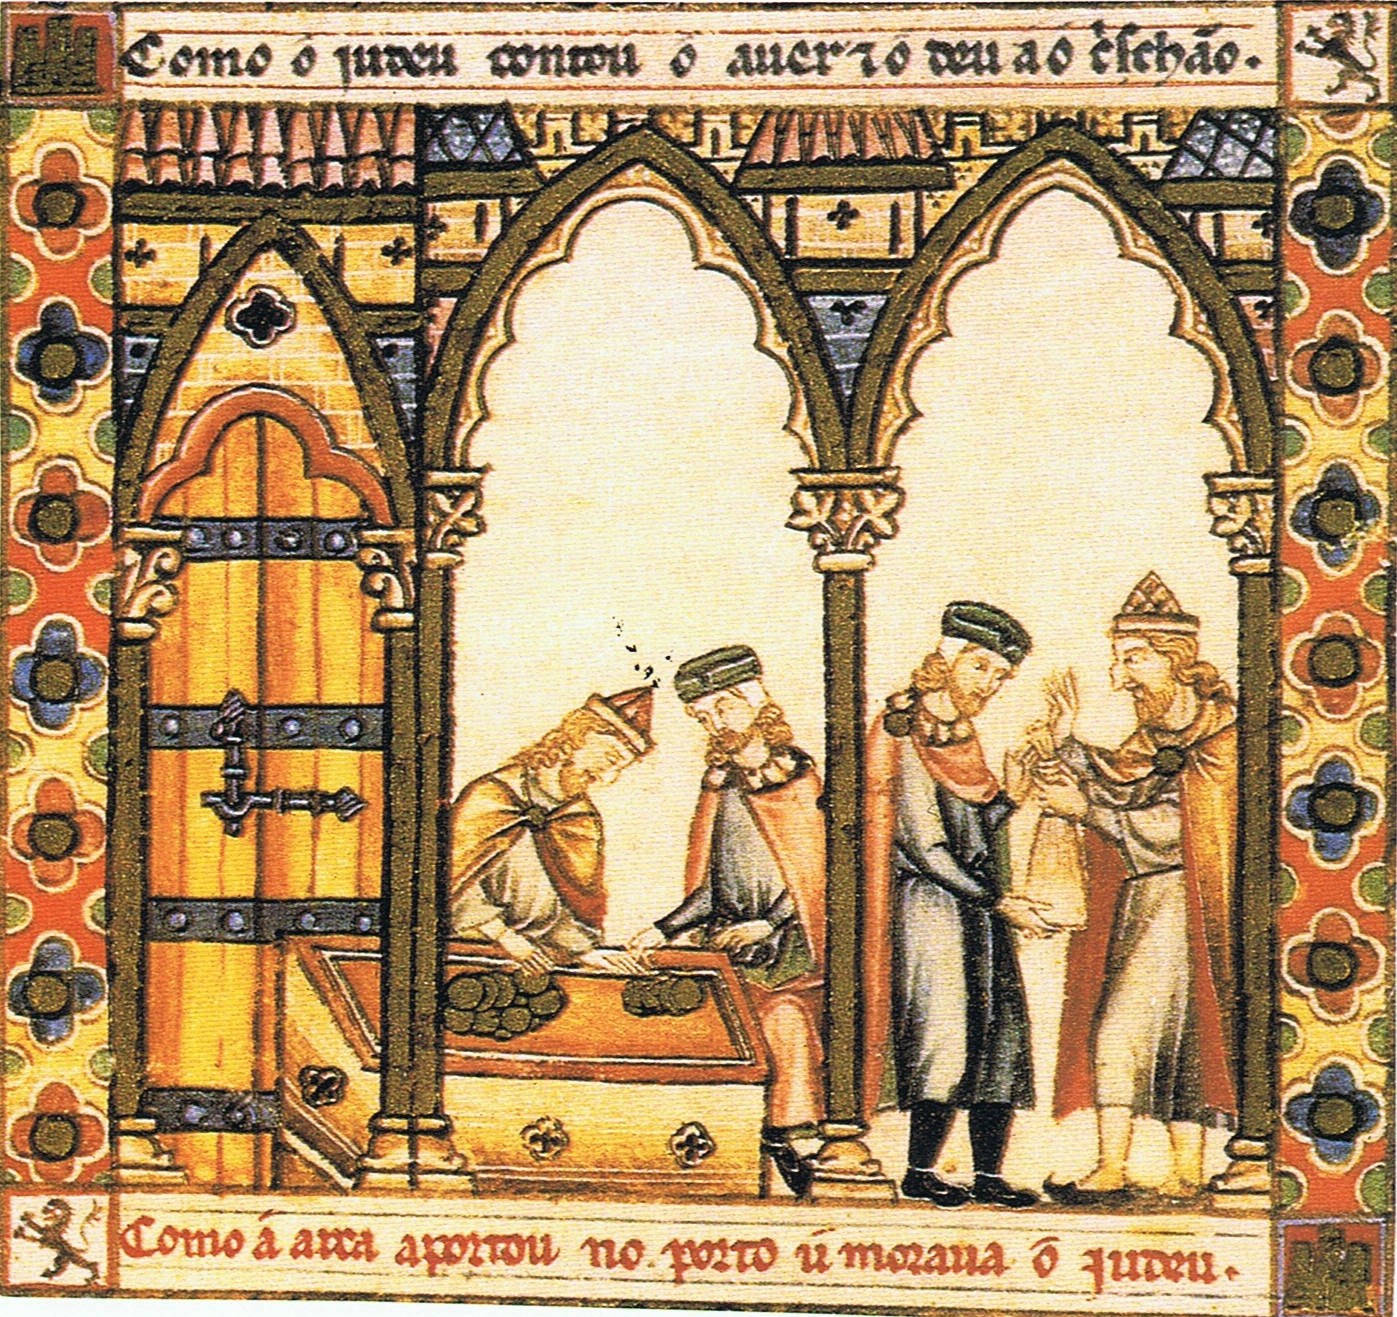 Como o iudeu contou o auer ⁊ o deu a o c̓schão.
Como á arca aportou no porto ú moraua o iudeu.